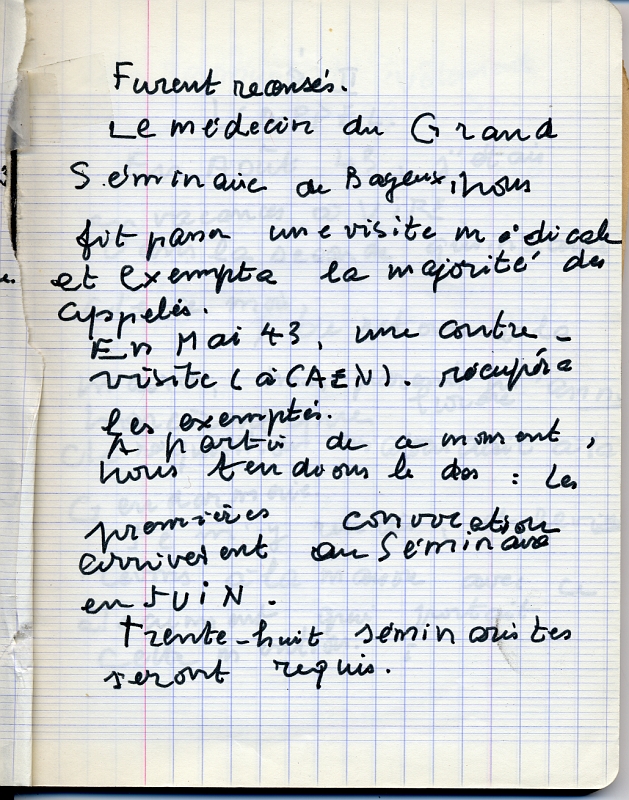 Furent recensés.
Le médecin du Grand
Séminaire de Bayeux, nous
fit passer une visite médicale
et exempta la majorité des
appelés.
En Mai 43, une contre-
visite (à CAEN). récupéra
les exemptés.
A partir de ce moment,
nous tendions le dos : les
premières convocation
arrivèrent au Séminaire
en JUIN.
Trente-huit séminaristes
seront requis.